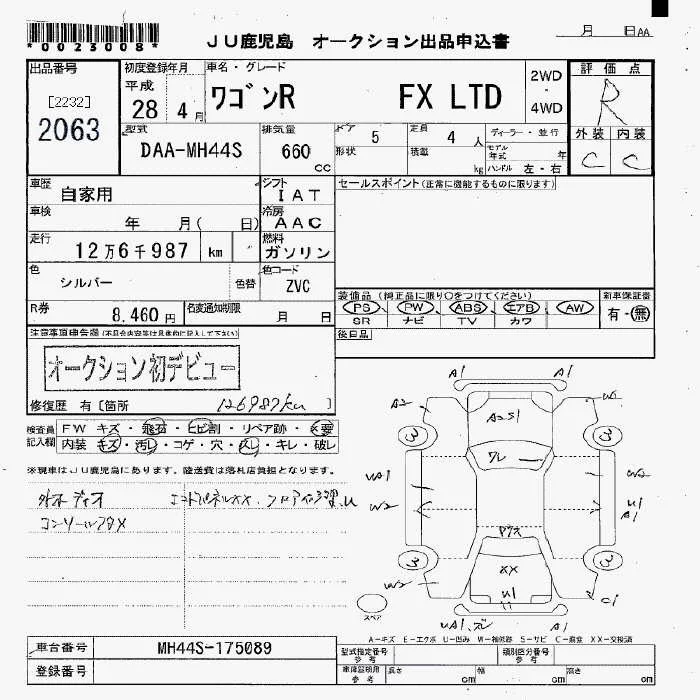 *0023008*
JU鹿児島 オークション出品申込書
月 日AA
出品番号
[2232]
2063
初度登録年月
平成
28 4月
車名・グレード
ワゴンR FX LTD
2WD
・
4WD
評価点
R
外装 内装
C C
型式
DAA-MH44S
排気量
660
cc
ドア 5
形状
定員 4 人
積載 kg
ディーラー・並行
モデル年式 年
ハンドル 左・右
車歴
自家用
シフト
IAT
セールスポイント(正常に機能するものに限ります)
車検
年 月( 日)
冷房
AAC
走行
12万6千987 km
燃料
ガソリン
色
シルバー
色替
色コード
ZVC
装備品(純正品に限り○をつけてください)
PS PW ABS エアB AW
SR ナビ TV カワ
新車保証書
有・無
R券
8,460円
名変通知期限
月 日
後日品
注意事項申告欄(不具合内容等は具体的に記入して下さい)
オークション初デビュー
修復歴 有〔箇所 126987km 〕
検査員
記入欄
FW キズ・飛石・ヒビ割・リペア跡・X要
内装・キズ・汚レ・コゲ・穴・スレ・キレ・破レ
※現車はJU鹿児島にあります。陸送費は落札店負担となります。
A1 A1
A2 W
A2S1
3 3
ワレ
UA1 W2
W2 U1
A1
3 3
XX
W2 U1 C1
UA1、ズレ
スペア
A-キズ E-エクボ U-凹み W-補修跡 S-サビ C-腐食 XX-交換済
車台番号
MH44S-175089
登録番号
型式指定番号
参考
類別区分番号
参考
車庫証明用
参考
長さ cm
幅 cm
高さ cm